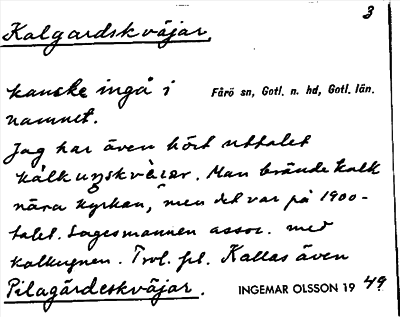 3
Kalgardskväjar,
kanske ingå i Fårö sn, Gotl. n. hd, Gotl. län.
namnet.
Jag har även hört uttalet
kálkuŋskvὲiar. Man brände kalk
nära kyrkan, men det var på 1900-
talet. Sagesmannen assoc. med
kalkugnen. Trol. fel. Kallas även
Pilagärdeskväjar. INGEMAR OLSSON 19 49